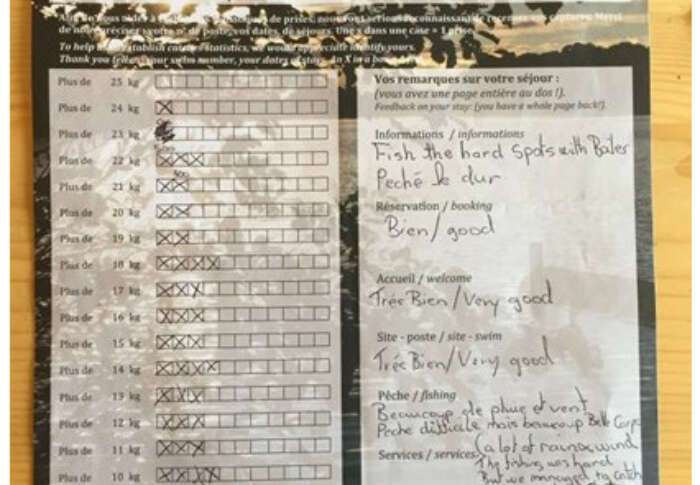 de prises, nous vous serions reconnaissant de recenser vos captures. Merci
de nous préciser votre n° de poste, vos dates, de séjours. Un x dans une case = 1 prise.
To help establish catches statistics, we would appreciate identify yours.
Thank you tell your swim number, your dates of stays. An X in a box
Plus de 25 kg
Plus de 24 kg X
Plus de 23 kg
Plus de 22 kg XXX
Plus de 21 kg XX
Plus de 20 kg XX
Plus de 19 kg XX
Plus de 18 kg XXXX
Plus de 17 kg XXX
Plus de 16 kg XXX
Plus de 15 kg XXX
Plus de 14 kg XXXX
Plus de 13 kg XXX
Plus de 12 kg XXX
Plus de 11 kg XXX
Plus de 10 kg XXXX
Vos remarques sur votre séjour :
(vous avez une page entière au dos !).
Feedback on your stay: (you have a whole page back!).
Informations / informations
Fish the hard spots with Baits
Peché le dur
Réservation / booking
Bien / good
Accueil / welcome
Trés Bien / Very good
Site - poste / site - swim
Trés Bien / Very good
Pêche / fishing
Beaucoup de pluie et vent
Peche difficile mais beaucoup Belle Carpe
Services / services:
(a lot of rain & wind
The fishing was hard
But we managed to catch